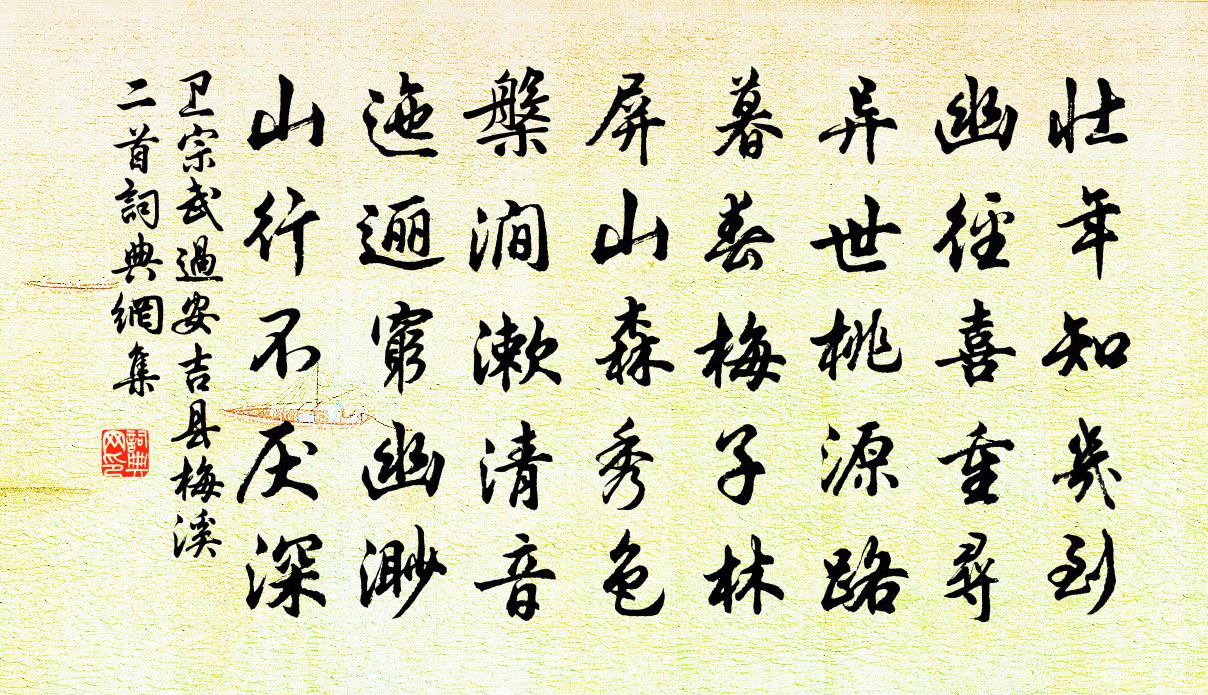 壮年知几到
幽径喜重尋
异世桃源路
暮春梅子林
屏山森秀色
槃涧漱清音
迤逦窮幽渺
山行不厌深
卫宗武過安吉县梅溪
二首詞典網集
詞典网印